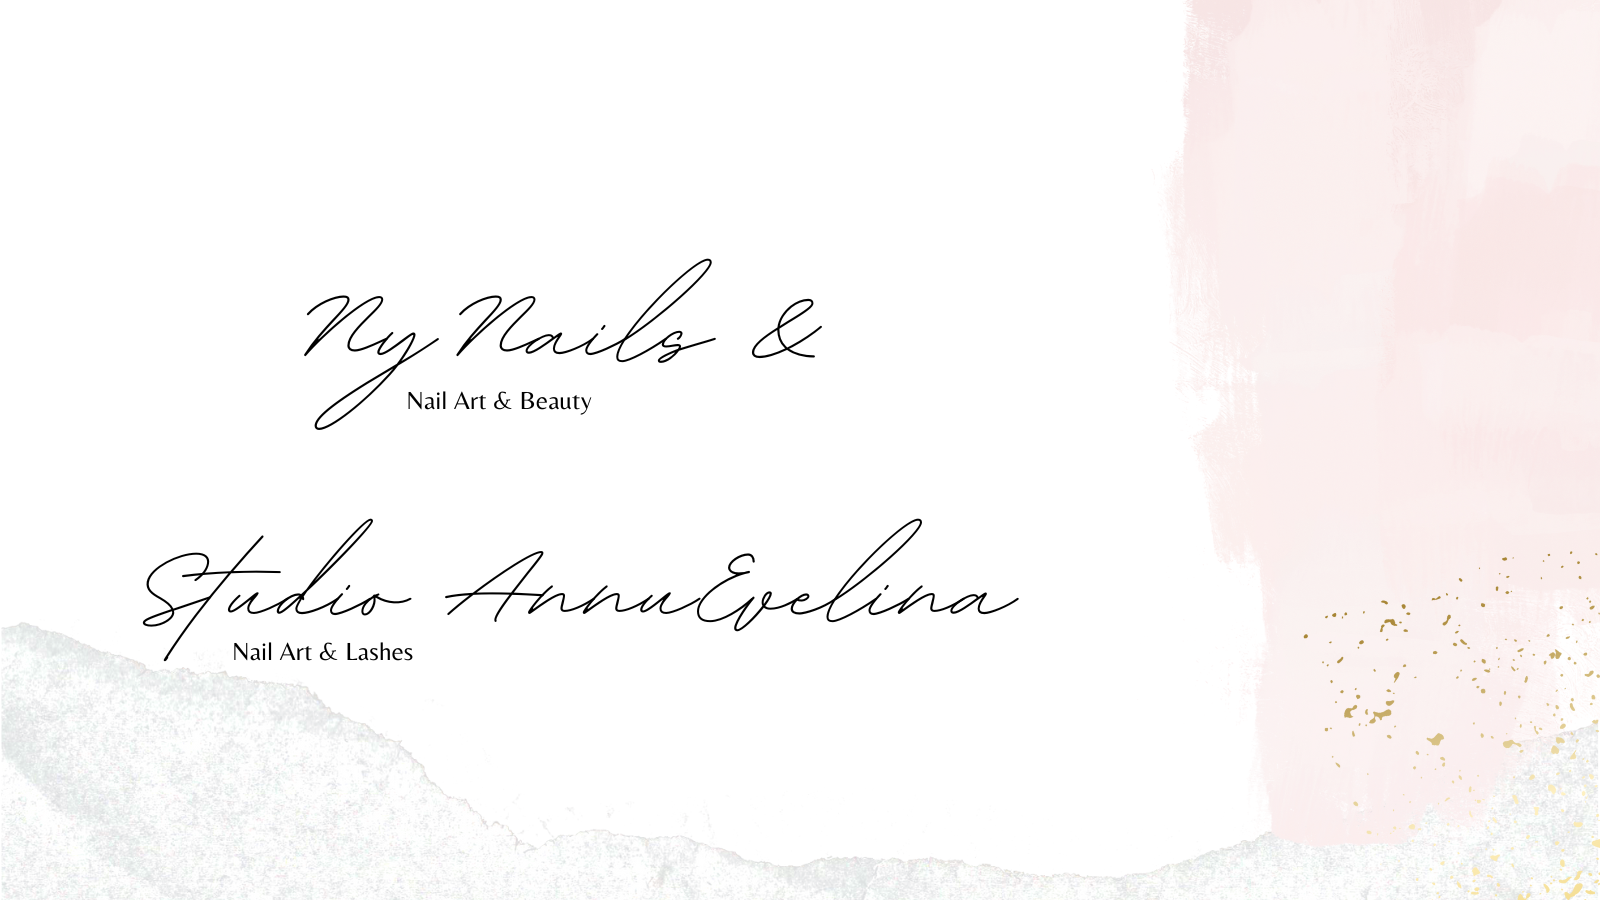 Ny Nails &
Nail Art & Beauty
Studio AnnuEvelina
Nail Art & Lashes